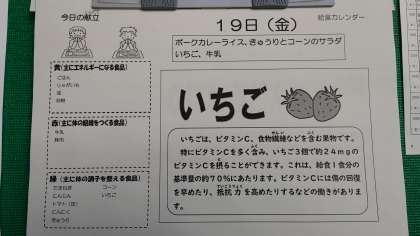 今日の献立
給食カレンダー
19日（金）
ポークカレーライス、きゅうりとコーンのサラダ
いちご、牛乳
黄(主にエネルギーになる食品)
ごはん
じゃがいも
油
砂糖
赤(主に体の組織をつくる食品)
牛乳
豚肉
緑(主に体の調子を整える食品)
たまねぎ コーン
にんじん いちご
トマト(缶)
にんにく
きゅうり
いちご
いちごは、ビタミンC、食物繊維などを含む果物です。
特にビタミンCを多く含み、いちご3個で約24mgの
ビタミンCを摂ることができます。これは、給食1食分の
基準量の約70％にあたります。ビタミンCには傷の回復
を早めたり、抵抗力を高めたりするなどの働きがありま
す。